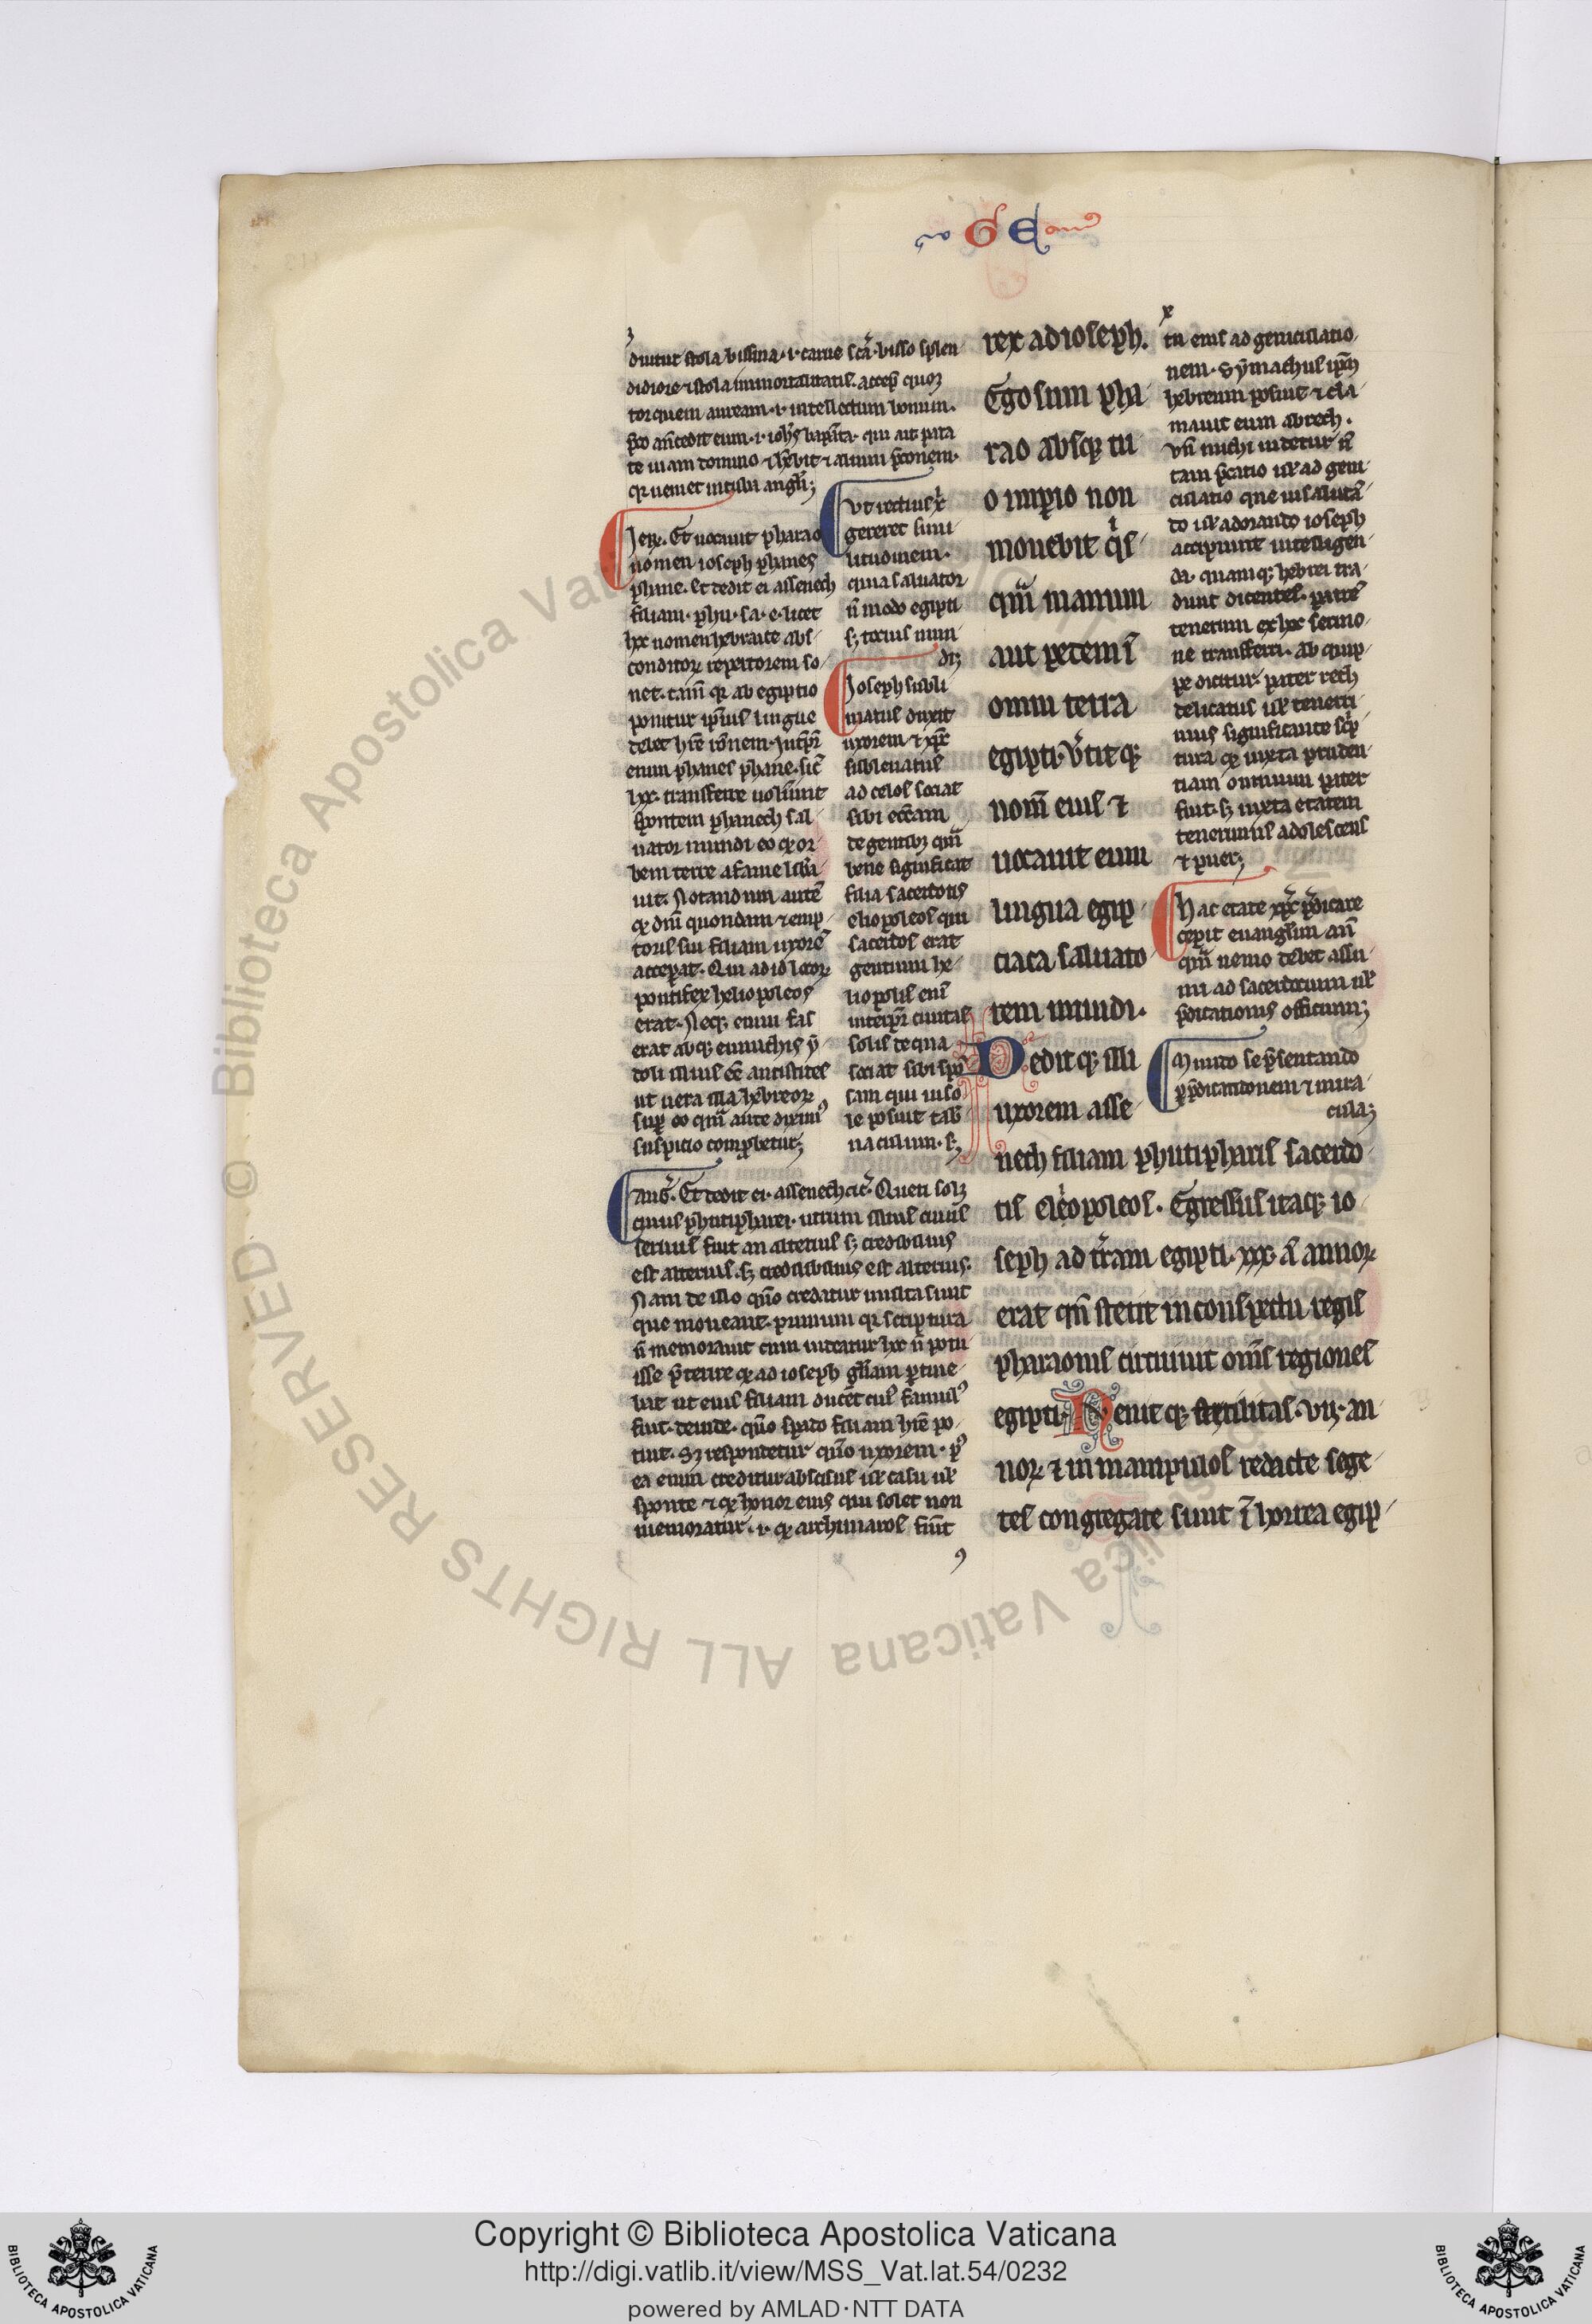 GE
duitur stola bissina .i. carne scā. bisso splen
didiore ⁊ stola immortalitatis. accep̄ quoqꝫ
torquem auream .i. intellectum bonum.
p̄co an̄cedit eum .i. ioh̄s baptīsta qui aut para
te uiam domino ⁊ habuit ⁊ alium p̄conem.
qꝛ ueniet in tuba angl̄i;
Jerꝫ. Et uocauit pharao
nomen ioseph phanes
phane. et dedit ei assenech
filiam. phu. sa. e. licet
hoc nomen hebraice abs
conditoꝝ repertorem so
net. tam̄ qꝛ ab egiptio
ponitur ip̄ius lingue
debet h̄re rōnem. Int̄pr̄
enim phanes phane. sic̄
lxx. transferre uolūunt
spontem phanech sal
uator mundi eo qꝫ or
bem terre a fame lib̄a
uit. Notandum aute
qꝫ dn̄m quondam ⁊ emp
toris sui filiam uxorē
acceperat. Qui ad id locoꝝ
pontifex heliopoleos
erat. Neqꝫ enim fas
erat absqꝫ eunuchis y
doli illius ēē antistites
ut uera illa hebreoꝝ
sup̄ eo qm̄ ante diximꝰ
suspicio comprobetur;
Vt rectius xp̄i
gereret simi
litudinem.
quia saluator
n̄ modo egipti
sꝫ tocius mun
di;
Joseph subli
matus duxit
uxorem ⁊ xp̄c
subleuatus
ad celos sociat
sibi ecc̄am
de gentibꝫ qm̄
bene significat
filia sacerdotis
eliopoleos qui
sacerdos erat
gentium he
liopolis eni
interpr̄ ciuitas
solis de qua
sociat sibi spō
sam qui in so
le posuit tab̄
naculum. s;
auḡ. Et dedit ei. assenech cet̄. Queri solꝫ
cuius phutipharei. utrum illius cuius
seruus fuit an alterius sꝫ credibilius
est alterius. sꝫ credibilius est alterius.
Nam de illo quō credatur multa sunt
que moueant. primum qꝛ scriptura
n̄ memorauit cum uideatur hoc n̄ potu
isse p̄terire qꝫ ad ioseph gl̄iam p̄tine
bat ut eius filiam ducēt cuiꝰ famulꝰ
fuit. deinde. quō spado filiam h̄re po
tuit. Sꝫ respondetur quō uxorem. pꝰ
ea enim creditur abscisus ul̄ casu ul̄
sponte ⁊ qꝫ honor eius qui solet non
memoratur .i. qꝫ archimaros fuīt
rex ad ioseph.
Ego sum pha
rao absqꝫ tu
o imperio non
mouebit qis
qm̄ manum
aut pedem ī
omni terra
egipti. Ūtit qꝫ
nom̄ eius ⁊
uocauit eum
lingua egip
ciaca saluato
rem mundi.
Dedit qꝫ illi
uxorem asse
nech filiam phutipharis sacerdo
tis eleopoleos. Egressus itaqꝫ io
seph ad t̄ram egipti. xxx. ā annoꝝ
erat qn̄ stetit in conspectu regis
pharaonis circuiuit om̄s regiones
egipti; Venit qꝫ fertilitas. vii. an
noꝝ ⁊ in manipulos redacte sege
tes congregate sunt ī horrea egip
tu eius ad geniculatio
nem. Symachus ip̄m
hebreum posuit ⁊ cla
mauit eum abrech.
Vn̄ michi uidetur n̄
tam p̄catio ul̄ ad geni
culatio que in salutā
do ul̄ adorando ioseph
accipiunt intelligen
da. quamqꝫ hebrei tra
dunt dicentes. patrē
tenerum ex hoc sermo
ne transferri. ab quip
pe dicitur. pater rech
delicatus ul̄ teneri
mus significante scp̄
tura qꝫ iuxta pruden
tiam omnium pater
fuit. sꝫ iuxta etatem
tenerimus adolescens
⁊ puer;
Hac etate xp̄c p̄dicare
cepit euangl̄ium an̄
qm̄ nemo debet assu
mi ad sacerdotium ul̄
p̄dicationis officium;
Mundo se p̄sentando
p̄ p̄dicationem ⁊ mira
cula;
© Biblioteca Apostolica Vaticana ALL RIGHTS RESERVED
Copyright © Biblioteca Apostolica Vaticana
http://digi.vatlib.it/view/MSS_Vat.lat.54/0232
powered by AMLAD·NTT DATA
BIBLIOTECA APOSTOLICA VATICANA
BIBLIOTECA APOSTOLICA VATICANA